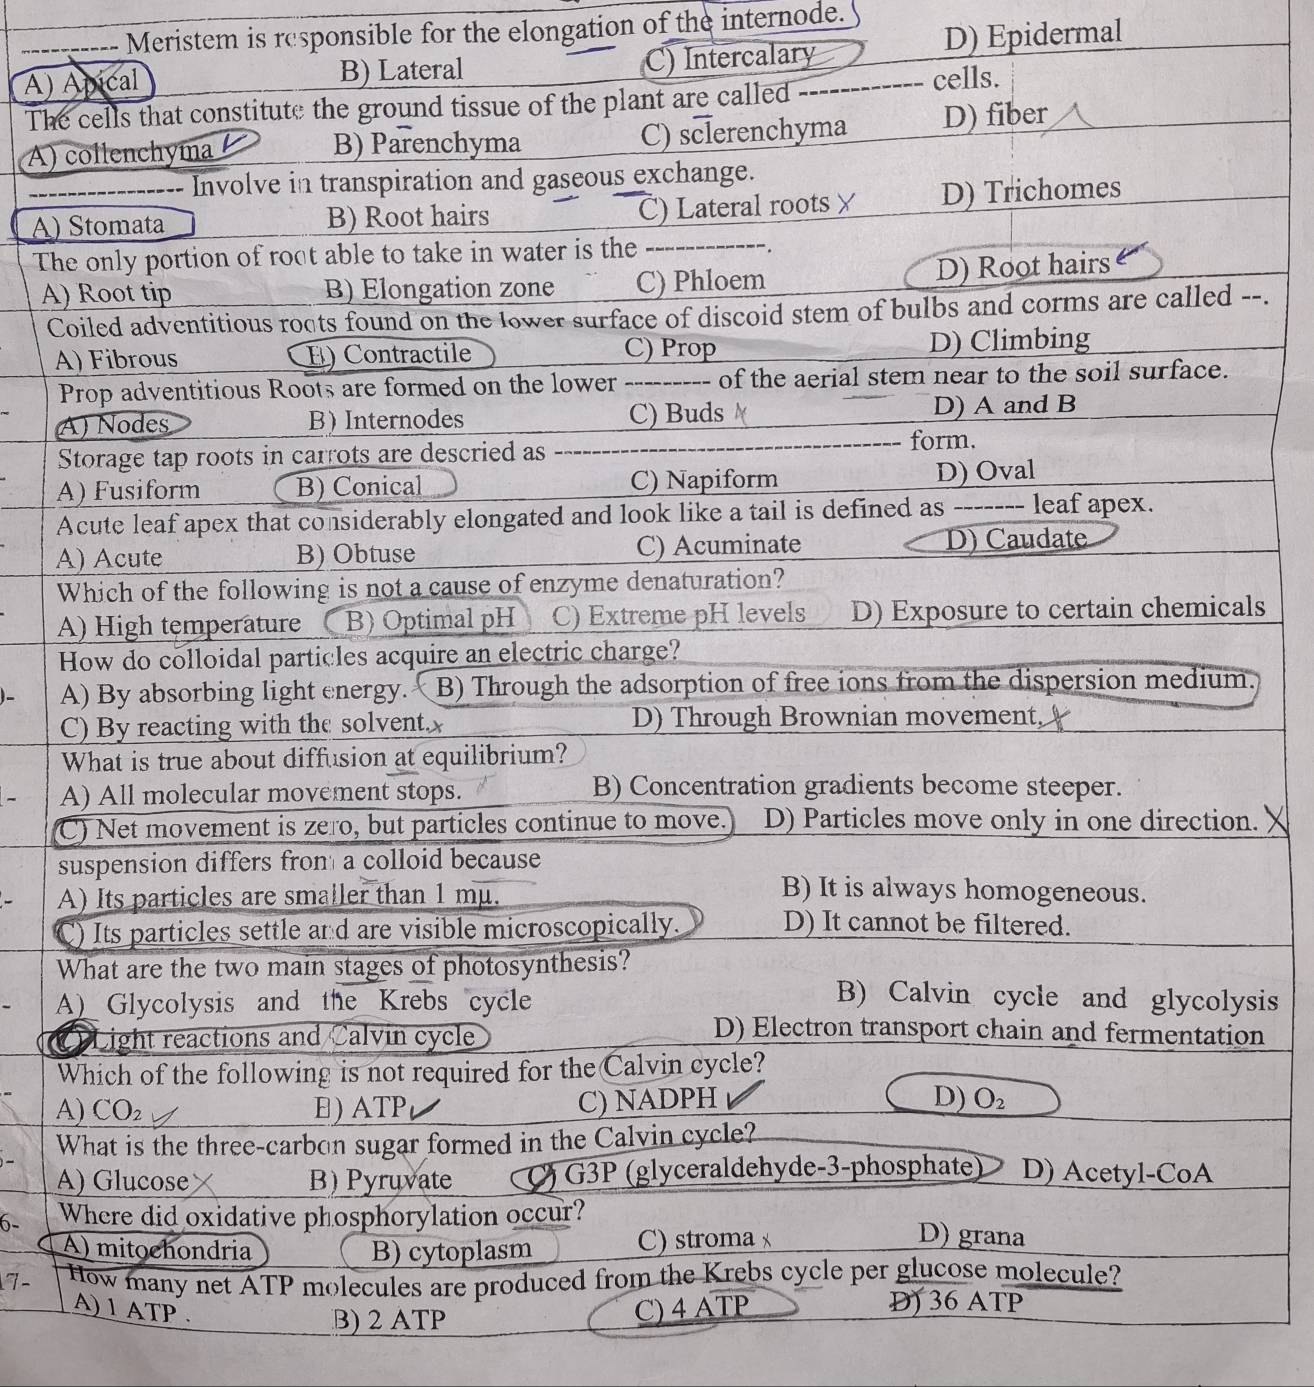 ---------- Meristem is responsible for the elongation of the internode.
A) Apical B) Lateral C) Intercalary D) Epidermal
The cells that constitute the ground tissue of the plant are called ------------ cells.
A) collenchyma B) Parenchyma C) sclerenchyma D) fiber
---------------- Involve in transpiration and gaseous exchange.
A) Stomata B) Root hairs C) Lateral roots D) Trichomes
The only portion of root able to take in water is the ------------.
A) Root tip B) Elongation zone C) Phloem D) Root hairs
Coiled adventitious roots found on the lower surface of discoid stem of bulbs and corms are called --.
A) Fibrous B) Contractile C) Prop D) Climbing
Prop adventitious Roots are formed on the lower --------- of the aerial stem near to the soil surface.
A) Nodes B) Internodes C) Buds D) A and B
Storage tap roots in carrots are descried as ----------------------------------- form.
A) Fusiform B) Conical C) Napiform D) Oval
Acute leaf apex that considerably elongated and look like a tail is defined as ------- leaf apex.
A) Acute B) Obtuse C) Acuminate D) Caudate
Which of the following is not a cause of enzyme denaturation?
A) High temperature B) Optimal pH C) Extreme pH levels D) Exposure to certain chemicals
How do colloidal particles acquire an electric charge?
A) By absorbing light energy. B) Through the adsorption of free ions from the dispersion medium.
C) By reacting with the solvent. D) Through Brownian movement.
What is true about diffusion at equilibrium?
A) All molecular movement stops. B) Concentration gradients become steeper.
C) Net movement is zero, but particles continue to move. D) Particles move only in one direction.
suspension differs from a colloid because
A) Its particles are smaller than 1 mµ. B) It is always homogeneous.
C) Its particles settle and are visible microscopically. D) It cannot be filtered.
What are the two main stages of photosynthesis?
A) Glycolysis and the Krebs cycle B) Calvin cycle and glycolysis
C) Light reactions and Calvin cycle D) Electron transport chain and fermentation
Which of the following is not required for the Calvin cycle?
A) CO₂ B) ATP C) NADPH D) O₂
What is the three-carbon sugar formed in the Calvin cycle?
A) Glucose B) Pyruvate C) G3P (glyceraldehyde-3-phosphate) D) Acetyl-CoA
6- Where did oxidative phosphorylation occur?
A) mitochondria B) cytoplasm C) stroma D) grana
17- How many net ATP molecules are produced from the Krebs cycle per glucose molecule?
A) 1 ATP. B) 2 ATP C) 4 ATP D) 36 ATP